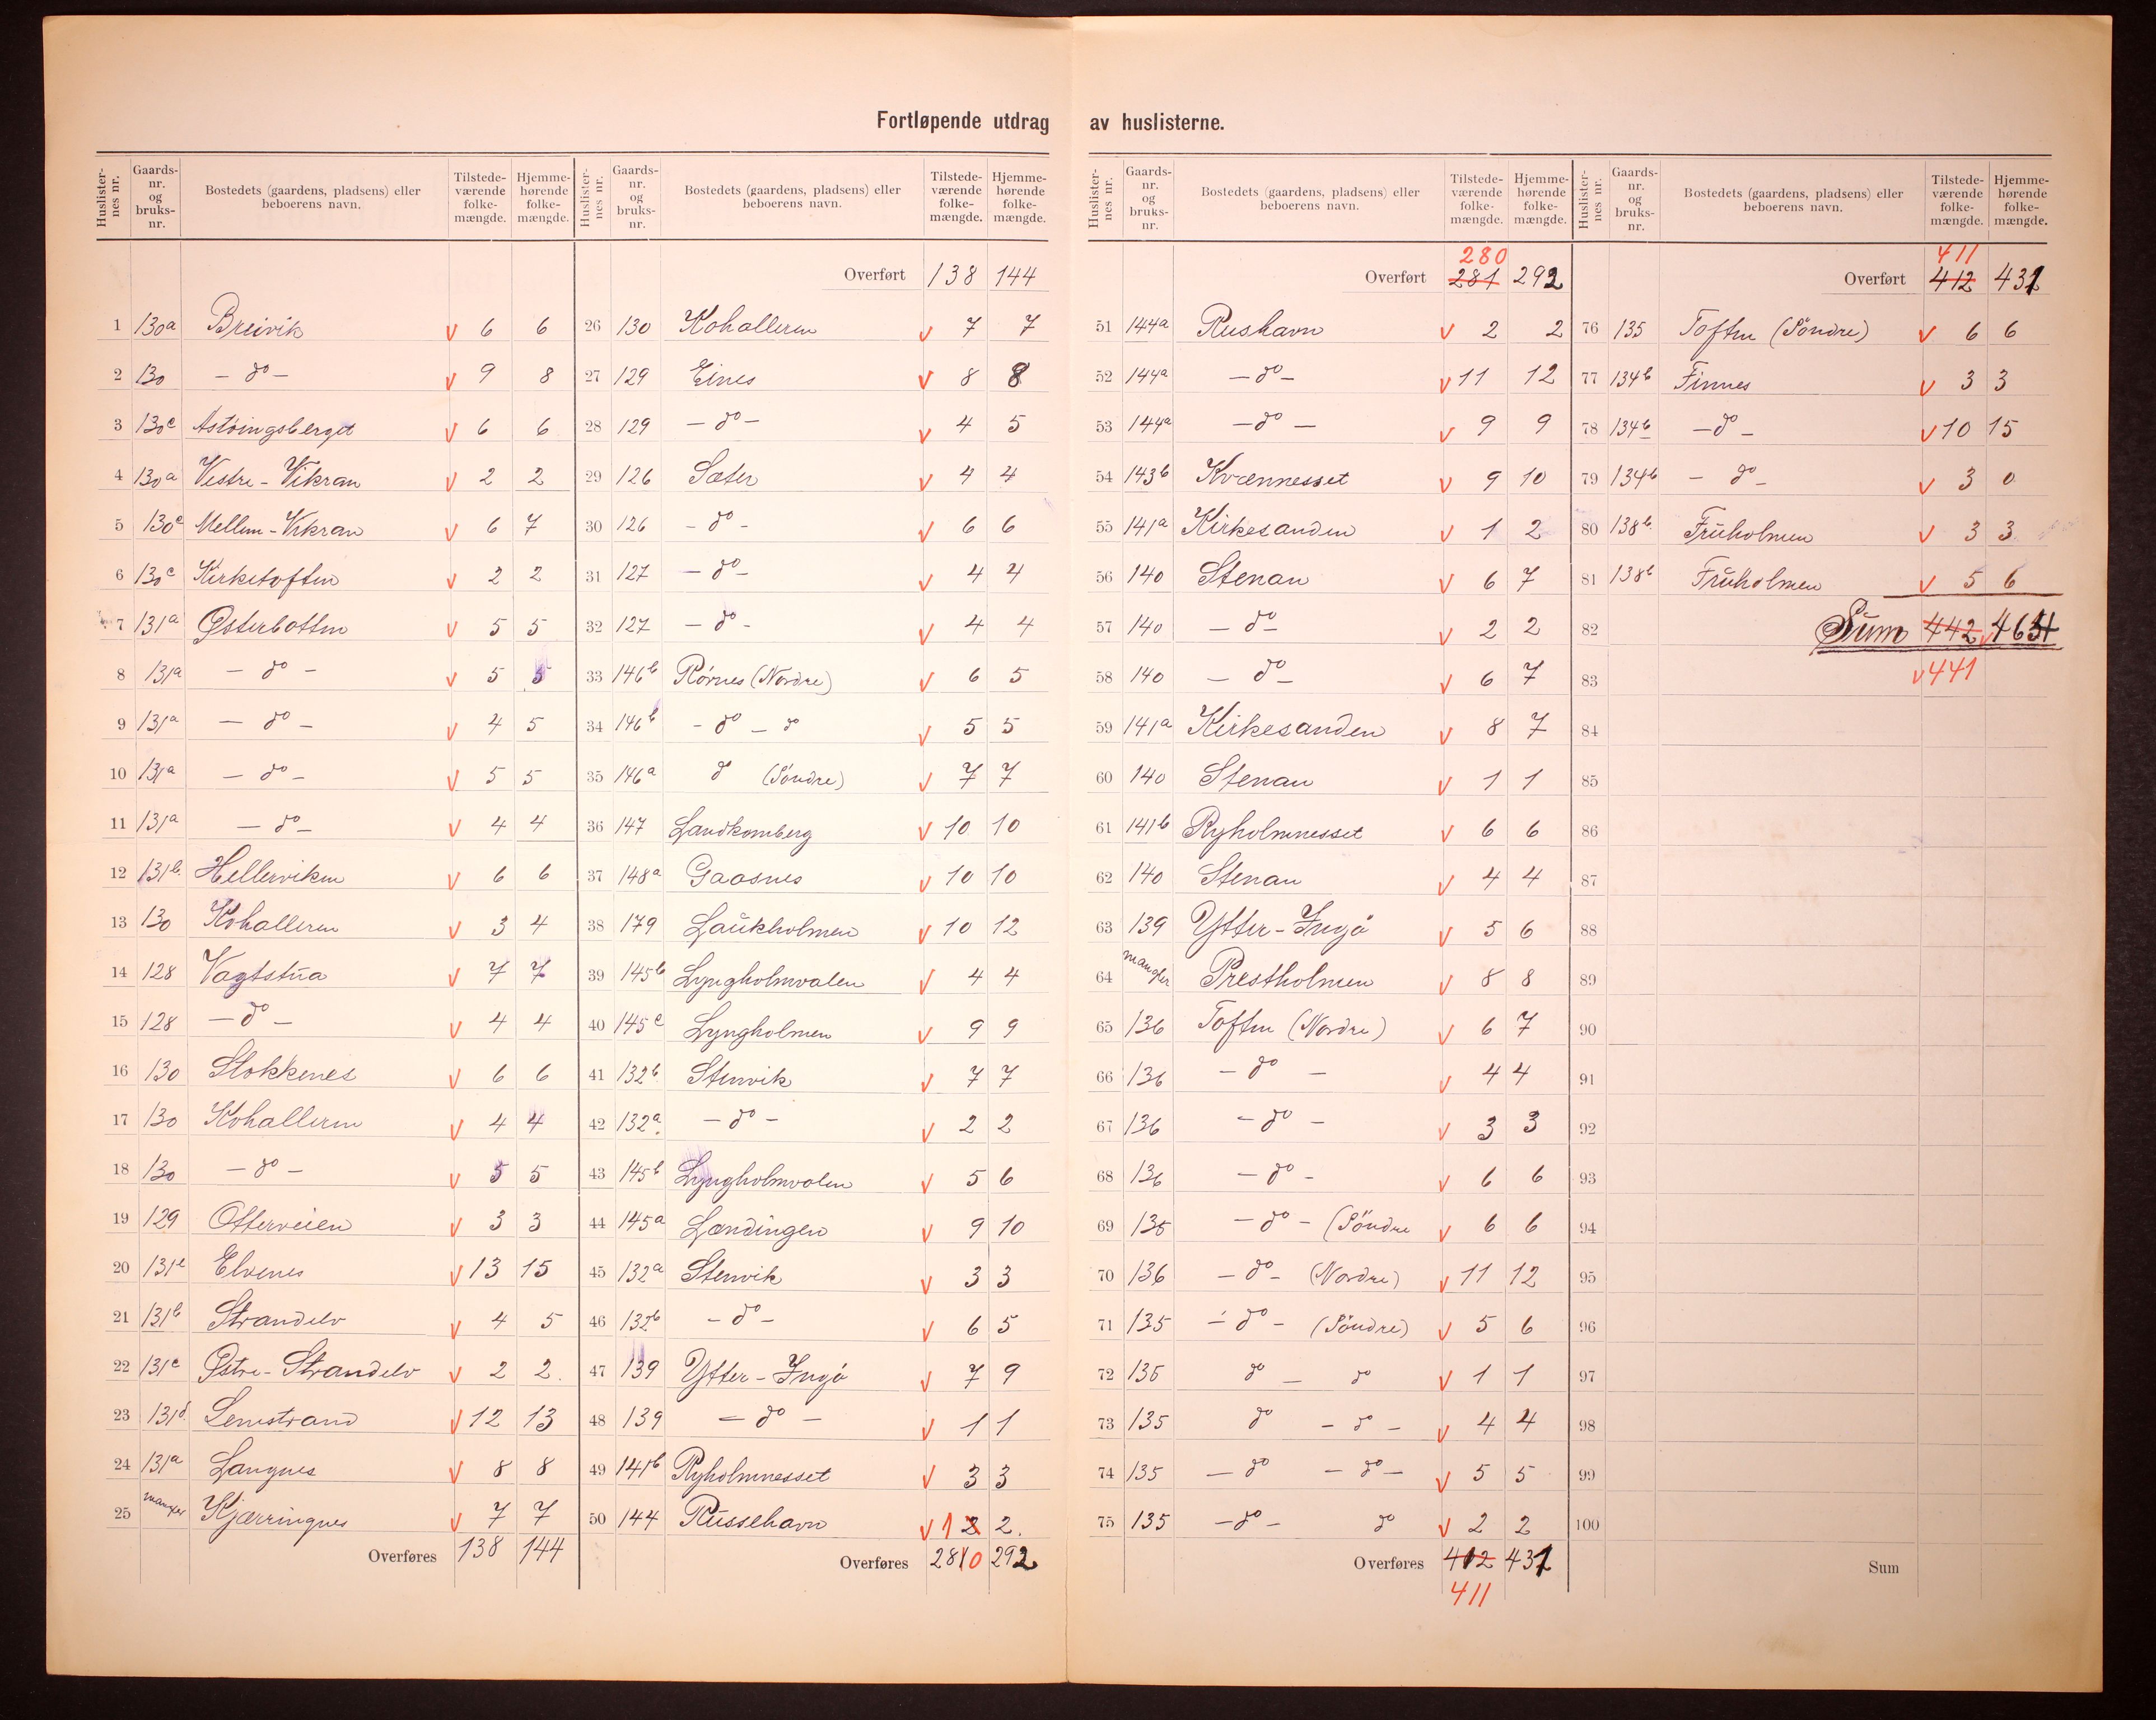 Fortløpende utdrag av huslisterne.
Huslisternes nr. Gaards-nr. og bruks-nr. Bostedets (gaardens, pladsens) eller beboerens navn. Tilstedeværende folkemængde. Hjemmehørende folkemængde.
1 130a Breivik v 6 6
2 130 - do - v 9 8
3 130c Astöingsberget v 6 6
4 130a Vestre-Vikran v 2 2
5 130c Mellem-Vikran v 6 7
6 130c Kirketoften v 2 2
7 131a Østerbotten v 5 5
8 131a - do - v 5 5
9 131a - do - v 4 5
10 131a - do - v 5 5
11 131a - do - v 4 4
12 131b. Hellerviken v 6 6
13 130 Kohalleren v 3 4
14 128 Vagtstua v 7 7
15 128 - do - v 4 4
16 130 Slokkenes v 6 6
17 130 Kohalleren v 4 4
18 130 - do - v 5 5
19 129 Otterveien v 3 3
20 131e Elvenes v 13 15
21 131b Strandelv v 4 5
22 131c Østre-Strandelv v 2 2.
23 131d. Lemstrand v 12 13
24 131a Langnes v 8 8
25 mangler Kjærringnes v 7 7
Overføres 138 144
Huslisternes nr. Gaards-nr. og bruks-nr. Bostedets (gaardens, pladsens) eller beboerens navn. Tilstedeværende folkemængde. Hjemmehørende folkemængde.
Overført 138 144
26 130 Kohalleren v 7 7
27 129 Eines v 8 8
28 129 - do - v 4 5
29 126 Sæter v 4 4
30 126 - do - v 6 6
31 127 - do - v 4 4
32 127 - do - v 4 4
33 146b Rörnes (Nordre) v 6 5
34 146b - do - do v 5 5
35 146a do (Söndre) v 7 7
36 147 Landkomberg v 10 10
37 148a Gaasnes v 10 10
38 179 Laukholmen v 10 12
39 145b Lyngholmvalen v 4 4
40 145c Lyngholmen v 9 9
41 132b Stenvik v 7 7
42 132a. - do - v 2 2
43 145b Lyngholmvalen v 5 6
44 145a Lændingen v 9 10
45 132a Stenvik v 3 3
46 132b - do - v 6 5
47 139 Ytter-Ingö v 7 9
48 139 - do - v 1 1
49 141b Ryholmnesset v 3 3
50 144 Russehavn v 1 2 2.
Overføres 281 0 292
Huslisternes nr. Gaards-nr. og bruks-nr. Bostedets (gaardens, pladsens) eller beboerens navn. Tilstedeværende folkemængde. Hjemmehørende folkemængde.
280
Overført 281 292
51 144a Rushavn v 2 2
52 144a - do - v 11 12
53 144a - do - v 9 9
54 143b Kvænnesset v 9 10
55 141a Kirkesanden v 1 2
56 140 Stenan v 6 7
57 140 - do - v 2 2
58 140 - do - v 6 7
59 141a Kirkesanden v 8 7
60 140 Stenan v 1 1
61 141b Ryholmnesset v 6 6
62 140 Stenan v 4 4
63 139 Ytter-Ingö v 5 6
64 mangler Prestholmen v 8 8
65 136 Toften (Nordre) v 6 7
66 136 - do - v 4 4
67 136 - do - v 3 3
68 136 - do - v 6 6
69 135 - do - (Söndre v 6 6
70 136 - do - (Nordre) v 11 12
71 135 - do - (Söndre) v 5 6
72 135 do - do v 1 1
73 135 do - do - v 4 4
74 135 - do - do - v 5 5
75 135 - do - do v 2 2
Overføres 412 431
411
Huslisternes nr. Gaards-nr. og bruks-nr. Bostedets (gaardens, pladsens) eller beboerens navn. Tilstedeværende folkemængde. Hjemmehørende folkemængde.
411
Overført 412 431
76 135 Toften (Söndre) v 6 6
77 134b Finnes v 3 3
78 134b - do - v 10 15
79 134b - do - v 3 0
80 138b. Fruholmen v 3 3
81 138b Fruholmen v 5 6
82 Sum 442 v 464
83 v 441
84
85
86
87
88
89
90
91
92
93
94
95
96
97
98
99
100
Sum